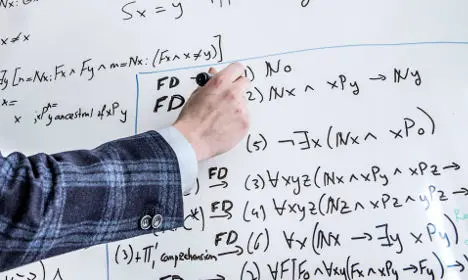 Sx = y
x ≠ x
∃y [n=Nx:Fx ∧ Fy ∧ m=Nx:(Fx ∧ x≠y)]
x=
x ;xPy ancestral of xPy
FD → (1) ℕ0
FD 2) ℕx ∧ xPy → ℕy
(5) ¬∃x(ℕx ∧ xP0)
) FD → (3) ∀xyz(ℕx ∧ xPy ∧ xPz →
*) FD → (4) ∀xyz(ℕz ∧ xPz ∧ yPz →
(3)+Π¹₁ comprehension FD → (6) ∀x(ℕx → ∃y xPy)
) ∀F[F0 ∧ ∀xy(Fx ∧ xPy → Fy) →